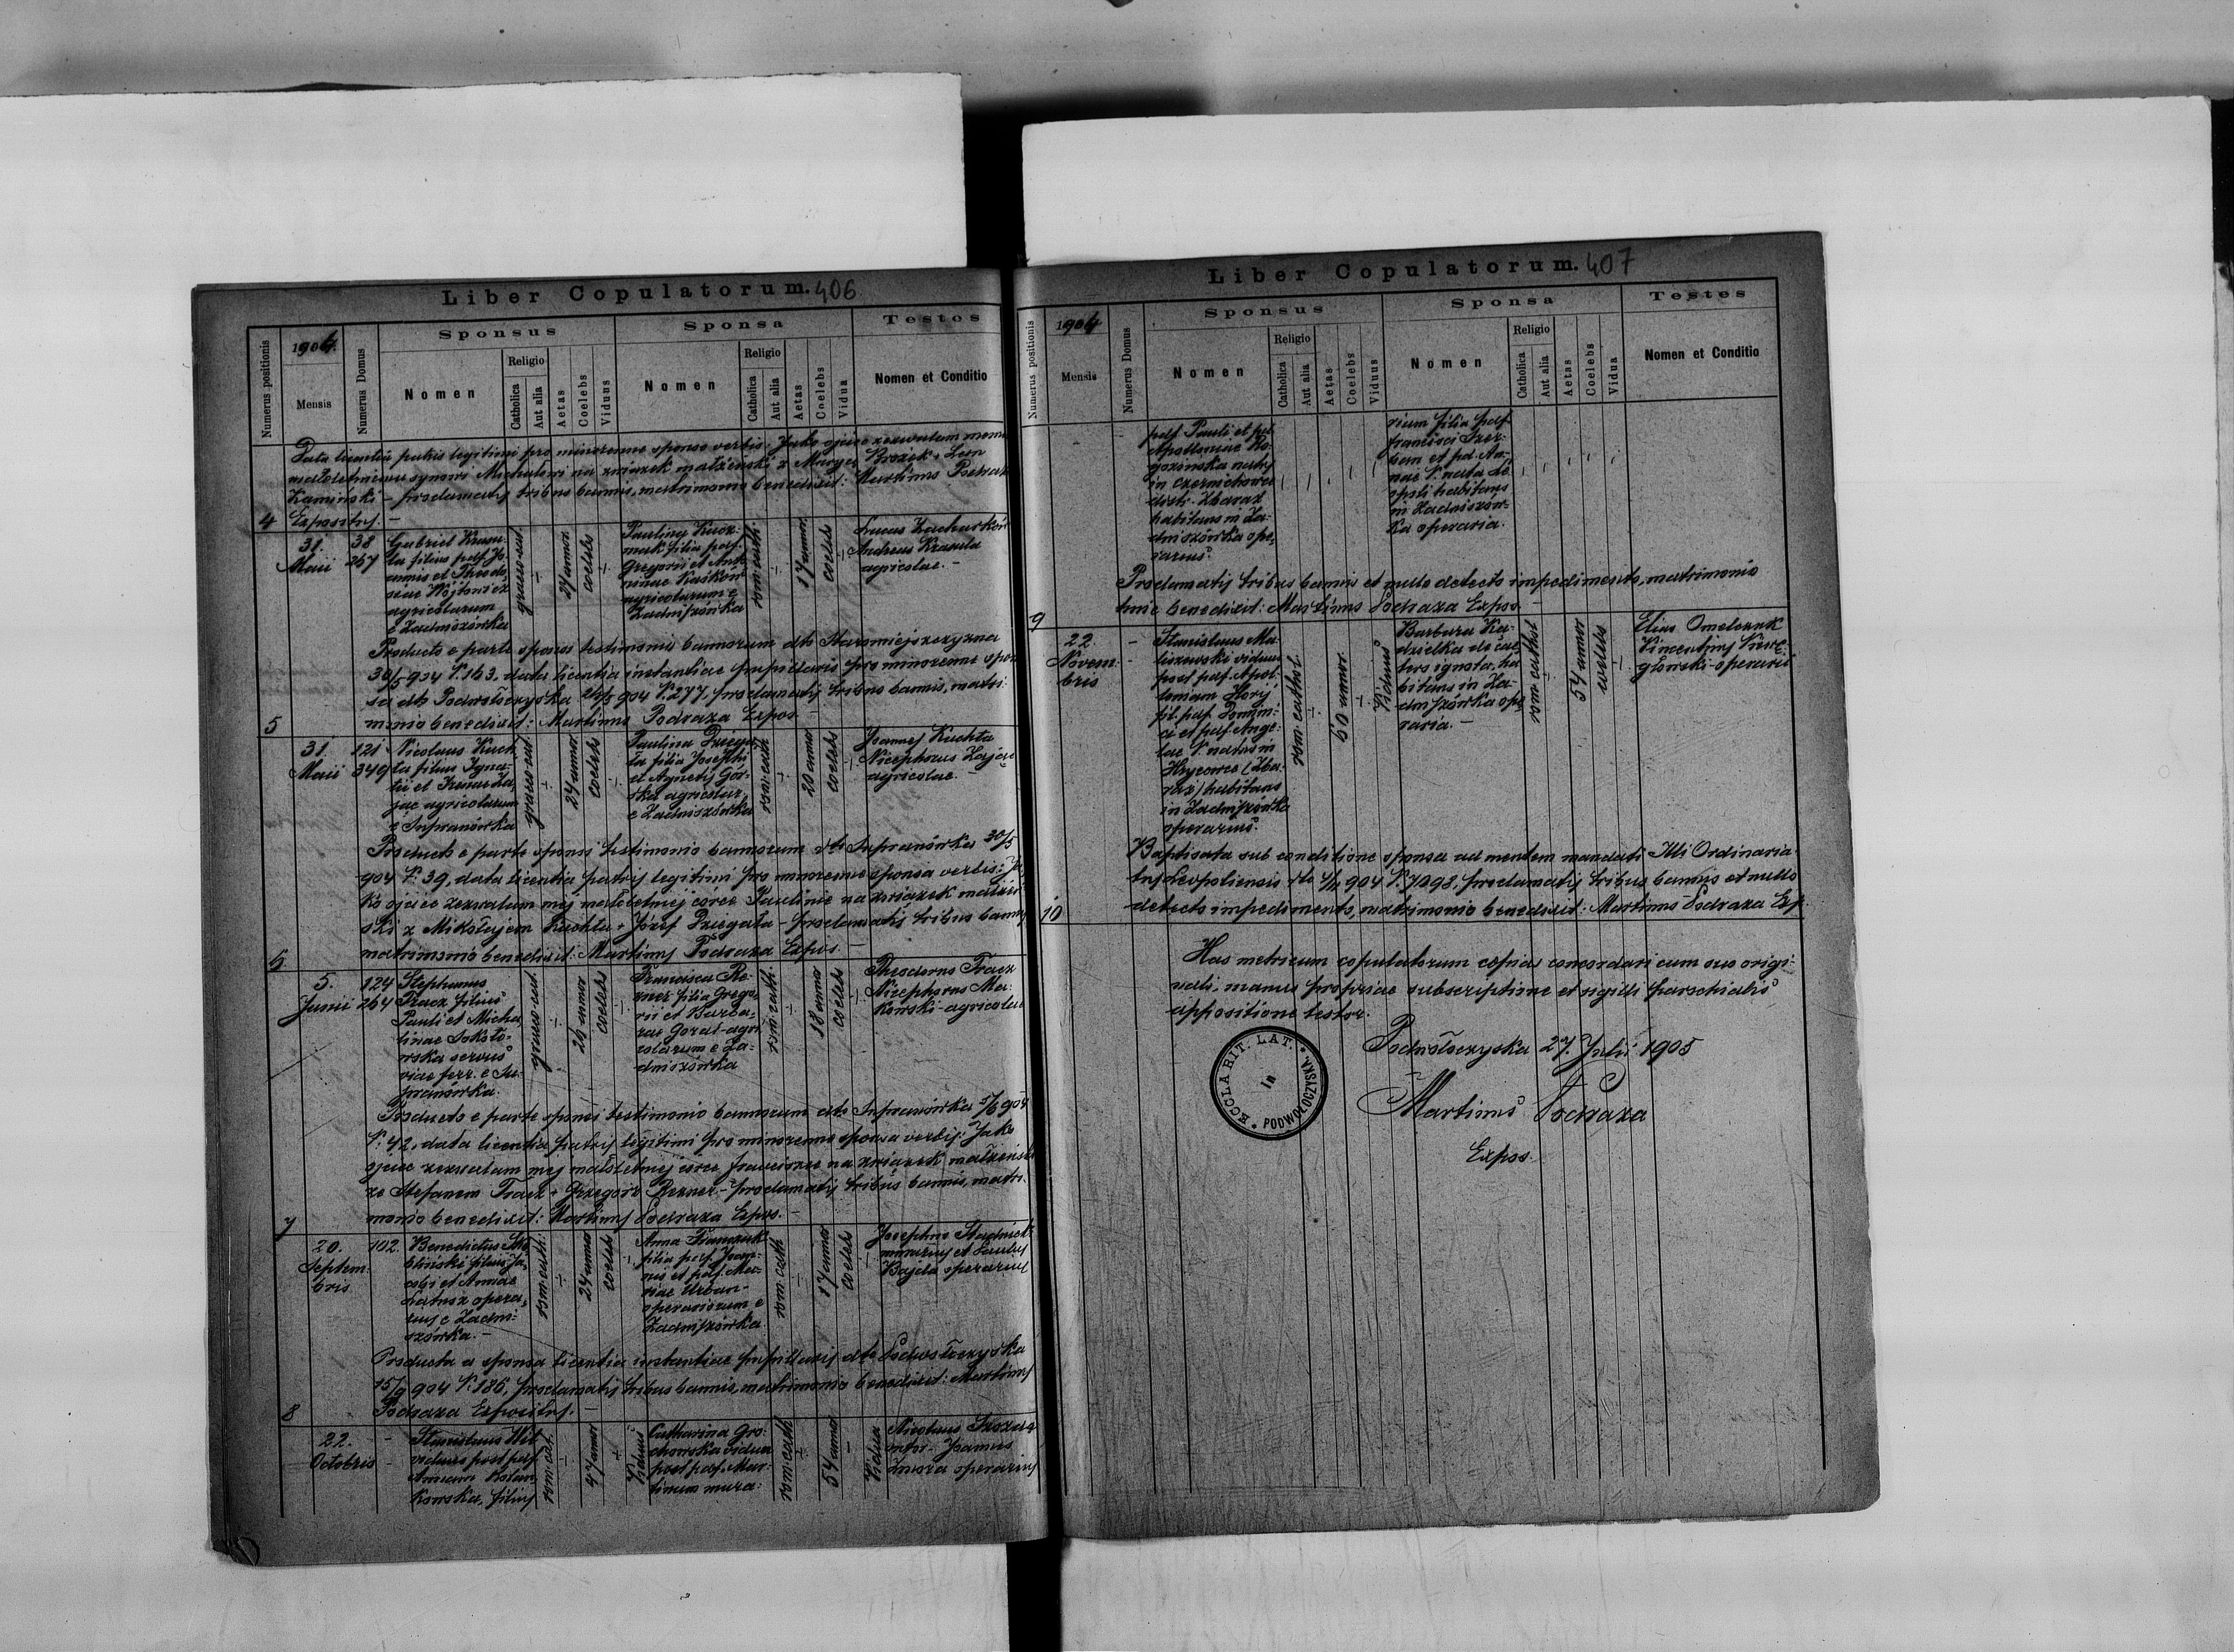 Liber Copulatorum. 406
Numerus positionis
1904.
Mensis
Numerus Domus
Sponsus
Nomen
Religio
Catholica
Aut alia
Aetas
Coelebs
Viduus
Sponsa
Nomen
Religio
Catholica
Aut alia
Aetas
Coelebs
Vidua
Testes
Nomen et Conditio
Data licentia patris legitimi pro minorenne sponso verbis: Jako ojciec zezwalam memu
małoletniemu synowi Michałowi na związek małżeński z Maryą Brozek + Leon
Kamiński - proclamatis tribus bannis, matrimonio benedixit: Martinus Podraza
Expositus. -
4
31.
Maii
38
267
Gabriel Krasu-
la filius pdf. Jo-
annis et Theodo-
siae Wójtowicz
agricolarum
e Zadniszówka
graeco cat.
27 annor.
coelebs
Paulina Kacz-
mak filia pdf.
Gregorii et Anto-
ninae
agricolarum e
Zadniszówka
rom. cath.
17 annor.
coelebs
Lucas
Andreas Krasula
agricolae. -
Producto e parte sponsi testimonio bannorum dto Staromiejszczyzna
30/5 904 N. 163, data licentia instantiae pupillaris pro minorenne spon-
sa dto Podwołoczyska 904 N. 277, proclamatis tribus bannis, matri-
monio benedixit: Martinus Podraza Expos.
5
31.
Maii
121
349
Nicolaus Kuch-
ta filius Igna-
tii et Irenae Za-
jac agricolarum
e Supranówka
graeco cat.
24 annor.
coelebs
Paulina Dziega-
ta filia Josephi
et Agnetis Gór-
ska agricolar.
e Zadniszówka
rom. cath.
20 annor.
coelebs
Joannes Kuchta
Nicephorus Zając
agricolae. -
Producto e parte sponsi testimonio bannorum dto Supranówka 30/5
904 N. 39, data licentia patris legitimi pro minorenne sponsa verbis: Ja-
ko ojciec zezwalam mej małoletniej córce Paulinie na związek małżeń-
ski z Mikołajem Kuchta + Józef Dziegała - proclamatis tribus bannis
matrimonio benedixit: Martinus Podraza Expos. -
6
5.
Junii
124
264
Stephanus
Tracz filius
Pauli et Micha-
linae Sokoło-
wska servus
viae ferr. e Su-
pranówka.
graeco cat.
26 annor.
coelebs
Francisca Re-
zner filia Grego-
rii et Barba-
rae Goral - agri-
colarum e Za-
dniszówka
rom. cath.
18 annor.
coelebs
Theodorus Tracz
Nicephorus Ma-
kowski - agricolae
Producto e parte sponsi testimonio bannorum dto Supranówka 5/6 904
N. 42, data licentia patris legitimi pro minorenne sponsa verbis: Jako
ojciec zezwalam mej małoletniej córce Franciszce na związek małżeński
ze Stefanem Tracz + Grzegorz Rezner. - proclamatis tribus bannis, matri-
monio benedixit: Martinus Podraza Expos. -
7
20.
Septem-
bris
102.
Benedictus
filius Ja-
cobi et Annae
opera-
rius e Zadni-
szówka. -
rom. cath.
24 annor.
coelebs
Anna
filia pdf. Joan-
nis et pdf. Ma-
riae Urban -
operariorum e
Zadniszówka
rom. cath.
17 annor.
coelebs
Josephus
murarius et Paulus
Bajda operarius
Producta a sponsa licentia instantiae pupillaris dto Podwołoczyska
15/9 904 N. 186, proclamatis tribus bannis, matrimonio benedixit: Martinus
Podraza Expositus. -
8
22.
Octobris
Stanislaus Wil
viduus post pdf.
Annam
filius
rom. cat.
47 annor.
Viduus
Catharina Gro-
chowska vidua
post pdf. Mar-
tinum mura-
rom. cath.
54 annor.
Vidua
Nicolaus
Joannes
operarius
Liber Copulatorum. 407
Numerus positionis
1904
Mensis
Numerus Domus
Sponsus
Nomen
Religio
Catholica
Aut alia
Aetas
Coelebs
Viduus
Sponsa
Nomen
Religio
Catholica
Aut alia
Aetas
Coelebs
Vidua
Testes
Nomen et Conditio
pdf. Pauli et pdf.
Apolloniae Ro-
gozińska natus
in Czernichowce
distr. Zbaraż
habitans in Za-
dniszówka ope-
rarius.
rium filia pdf.
Francisci Szcz-
ban et pd. An-
nae N. nata
habitans
in Zadniszów-
ka operaria.
Proclamatis tribus bannis et nullo detecto impedimento, matrimonio
huic benedixit: Martinus Podraza Expos. -
9
22.
Novem-
bris
Stanislaus Ma-
liszewski viduus
post pdf. Apol-
loniam
fil. pdf. Domini-
ci et pdf. Ange-
lae N. natus in
Hrycowce (Zba-
raż) habitans
in Zadniszówka
operarius.
rom. cathol.
60 annor.
Viduus
Barbara Ka-
dzielka de cae-
tero ignota, ha-
bitans in Za-
dniszówka ope-
raria. -
rom. cathol.
54 annor.
coelebs
Elias Omelczuk
Vincentius
operarii
Baptisata sub conditione sponsa ad mentem mandati Illi Ordinaria-
tus Leopoliensis dto 4/11 904 N. 7098, proclamatis tribus bannis et nullo
detecto impedimento, matrimonio benedixit: Martinus Podraza Exp.
10
Has metricum copulatorum copias concordari cum suo origi-
nali, manus propriae subscriptione et sigilli parochialis
appositione testor.
Podwołoczyska 27. Julii 1905
Martinus Podraza
Expos.
ECCLA RIT. LAT. * In * PODWOŁOCZYSKA